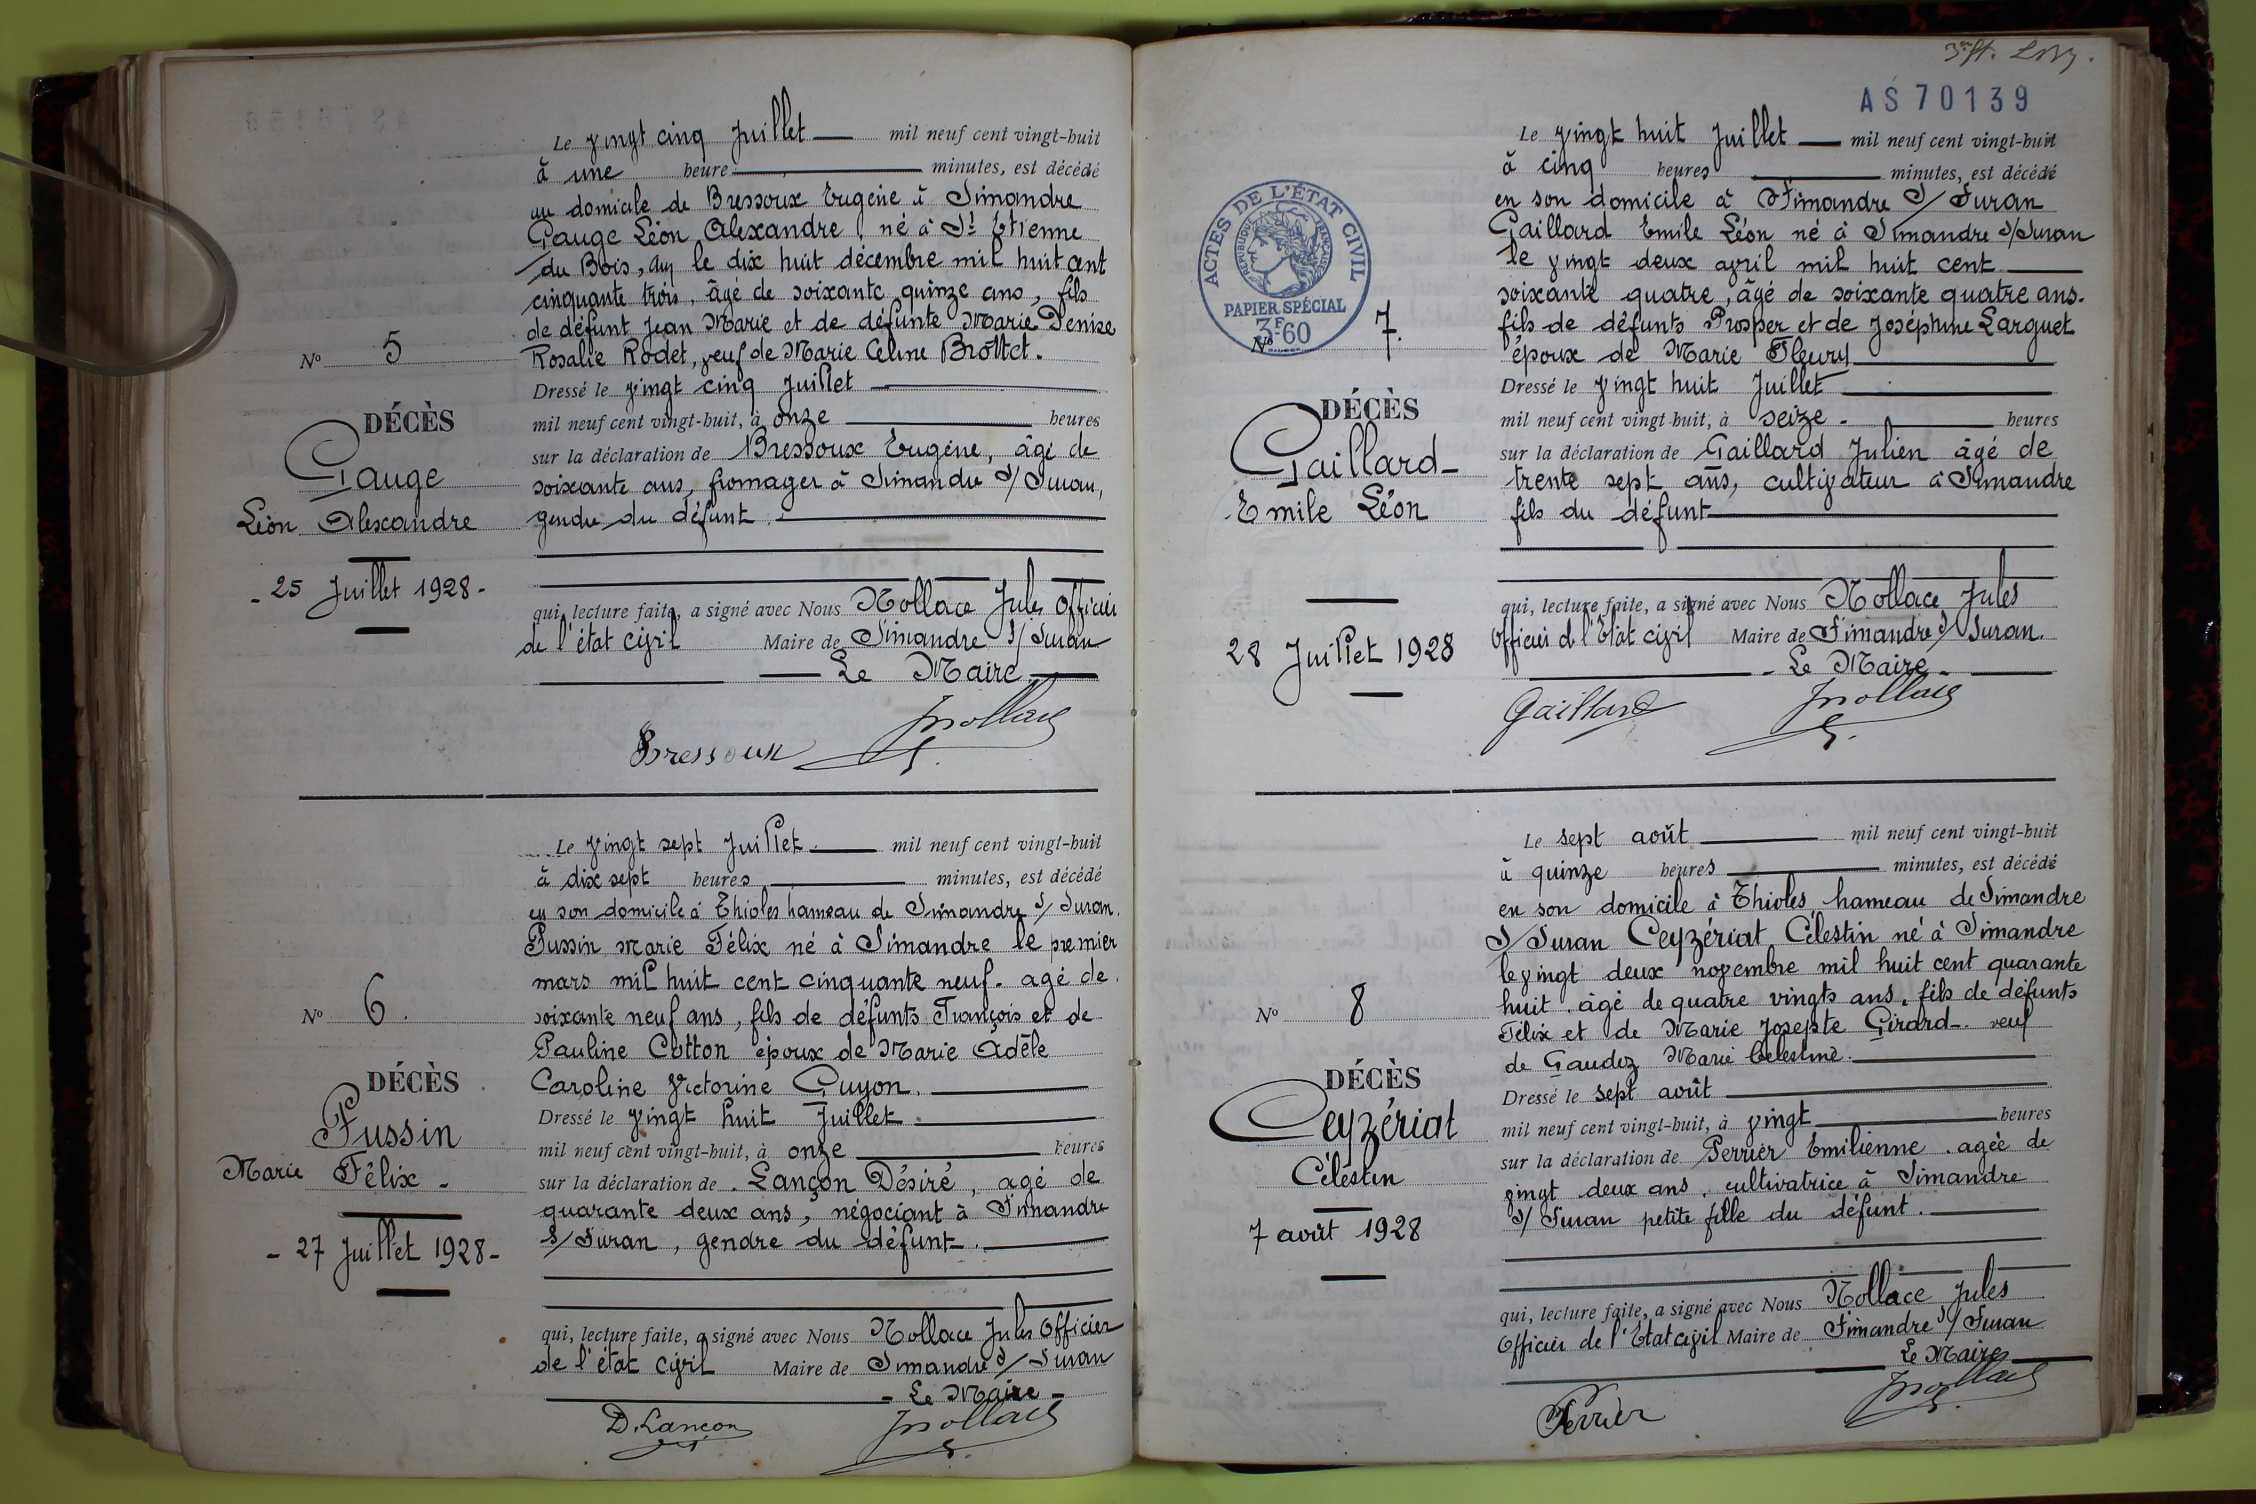 Le vingt cinq Juillet mil neuf cent vingt-huit
à une heure minutes, est décédé
au domicile de Bressoux Eugène à Simandre
Gauge Léon Alexandre, né à St Etienne
du Bois, Ain le dix huit décembre mil huit cent
cinquante trois, âgé de soixante quinze ans, fils
de défunt Jean Marie et de défunte Marie Denise
Rosalie Rodet, veuf de Marie Celine Brottet.
Nº 5
Dressé le vingt cinq Juillet
DÉCÈS
mil neuf cent vingt-huit, à onze heures
Gauge
sur la déclaration de Bressoux Eugène, âgé de
soixante ans, fromager à Simandre S/ Suran,
Léon Alexandre
gendre du défunt.
- 25 Juillet 1928 -
qui, lecture faite, a signé avec Nous Nollace Jules Officier
de l'état civil Maire de Simandre S/ Suran
Le Maire
Bressoux JNollace
Le vingt sept Juillet mil neuf cent vingt-huit
à dix sept heures minutes, est décédé
en son domicile à Thioles hameau de Simandre S/ Suran.
Pussin Marie Félix né à Simandre le premier
mars mil huit cent cinquante neuf. agé de
Nº 6.
soixante neuf ans, fils de défunts François et de
Pauline Cotton époux de Marie Adèle
DÉCÈS
Caroline Victorine Guyon.
Pussin
Dressé le vingt huit Juillet.
mil neuf cent vingt-huit, à onze heures
Marie Félix -
sur la déclaration de Lançon Désiré, agé de
quarante deux ans, négociant à Simandre
- 27 Juillet 1928 -
S/ Suran, gendre du défunt.
qui, lecture faite, a signé avec Nous Nollace Jules Officier
de l'état civil Maire de Simandre S/ Suran
- Le Maire -
D. Lançon JNollace
AS 70139
Le vingt huit Juillet mil neuf cent vingt-huit
à cinq heures minutes, est décédé
en son domicile à Simandre S/ Suran
Gaillard Emile Léon né à Simandre S/Suran
le vingt deux avril mil huit cent
soixante quatre, âgé de soixante quatre ans.
fils de défunts Prosper et de Joséphine Larguet
époux de Marie Fleury
ACTES DE L'ÉTAT CIVIL
RÉPUBLIQUE FRANÇAISE
PAPIER SPÉCIAL
3F60
Nº 7.
Dressé le vingt huit Juillet
DÉCÈS
mil neuf cent vingt-huit, à seize - heures
Gaillard -
sur la déclaration de Gaillard Julien âgé de
trente sept ans, cultivateur à Simandre
Emile Léon
fils du défunt
28 Juillet 1928
qui, lecture faite, a signé avec Nous Nollace Jules
Officier de l'Etat civil Maire de Simandre S/ Suran.
- Le Maire -
Gaillard JNollace
Le sept août mil neuf cent vingt-huit
à quinze heures minutes, est décédé
en son domicile à Thioles, hameau de Simandre
S/ Suran Ceyzériat Célestin né à Simandre
le vingt deux novembre mil huit cent quarante
Nº 8
huit. âgé de quatre vingts ans. fils de défunts
Félix et de Marie Josepte Girard. veuf
de Gaudez Marie Celestine.
DÉCÈS
Dressé le sept août
Ceyzériat
mil neuf cent vingt-huit, à vingt heures
Célestin
sur la déclaration de Perrier Emilienne. agée de
vingt deux ans, cultivatrice à Simandre
7 août 1928
S/ Suran petite fille du défunt.
qui, lecture faite, a signé avec Nous Nollace Jules
Officier de l'Etat civil Maire de Simandre S/ Suran
Le Maire
Perrier JNollace